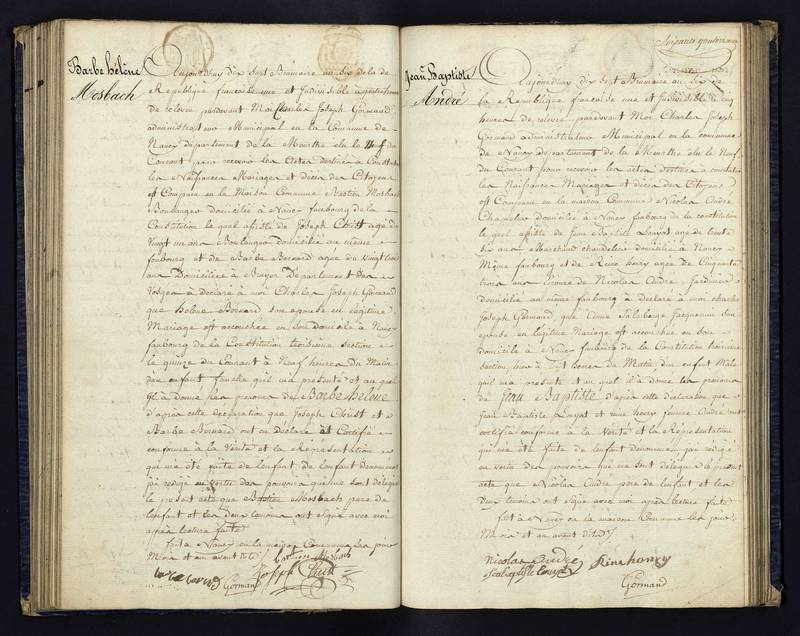 Barbe hélène
Mosbach
Aujourdhuy dix Sept Brumaire an Six de la
République française une et Indivisible à
de relevée pardevant Moi Charles Joseph Gormand
administrateur Municipal en la Commune de
Nancy département de la Meurthe élu le Neuf du
Courant pour recevoir les Actes destinés à Constater
les Naissances Mariages et décès des Citoyens
est Comparu en la Maison Commune Bastien Mosbach
Boulanger domicilié à Nancy faubourg de la
Constitution lequel assisté de Joseph Christ agé de
Vingt un ans Boulanger domicilié au même
faubourg et de Barbe Bernard agée de Vingt trois
ans Domiciliée à Bruyer Département des
Vosges à déclaré à moi Charles Joseph Gormand
que helene Bernard son epouse en légitime
Mariage est accouchée en son domicile à Nancy
faubourg de la Constitution troisieme section
le quinze du Courant à Neuf heures du Matin
dun enfant femelle quil m'a présenté et au quel
il à donné les prenoms de Barbe helene
d'après cette déclaration que Joseph Christ et
Barbe Bernard ont déclaré et Certifié
conforme à la Vérité et la Représentation
qui m'a été faite de l'enfant denommé
jai redigé en vertu des pouvoirs qui me sont délégués
le présent acte que Bastien Mosbach pere de
l'enfant et les deux temoins ont signé avec moi
après lecture faite
fait à Nancy en la maison Commune les jour
Mois et an avant dits
bastien Mosbach
Joseph Christ
Gormand
Soixante quatorze
Jean Baptiste
André
Aujourdhuy dix Sept Brumaire an Six de
la République française une et Indivisible à cinq
heures de relevée pardevant Moi Charles Joseph
Gormand administrateur Municipal en la commune
de Nancy département de la Meurthe élu le Neuf
du Courant pour recevoir les actes destinés à constater
les Naissances Mariages et décès des Citoyens
est Comparu en la maison Commune Nicolas André
domicilié à Nancy faubourg de la constitution
le quel assisté de Jean Baptiste Louyat agé de trente
six ans Marchand chandelier domicilié à Nancy
Même faubourg et de Reine henry agée de Cinquante
trois ans épouse de Nicolas André Jardinier
domicilié au même faubourg à déclaré à moi charles
Joseph Gormand que Jacquemin son
epouse en légitime Mariage est accouchée en son
domicile à Nancy faubourg de la Constitution troisieme
section heures du Matin dun enfant Mâle
quil m'a présenté et au quel il à donné les prenoms
de Jean Baptiste d'après cette déclaration que
Jean Baptiste Louyat et Reine henry femme André ont
certifié conforme à la Vérité et la Réprésentation
qui m'a été faite de lenfant denommé jai redigé
en vertu des pouvoirs qui me sont délégués le présent
acte que Nicolas André pere de lenfant et les
deux temoins ont signé avec moi après lecture faite
fait à Nancy en la maison Commune les jour
Mois et an avant dits
Nicolas André Reine henry
Jean baptiste Louyat
Gormand